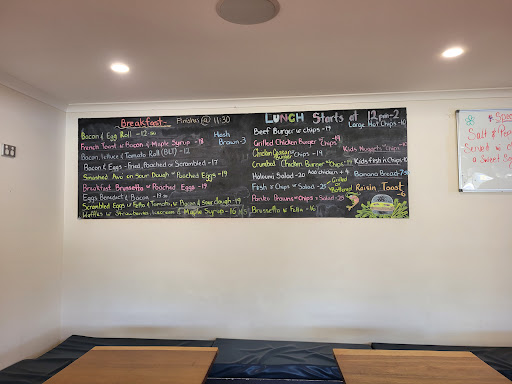 Breakfast - Finishes @ 11:30
Bacon & Egg Roll - 12.00
French Toast w Bacon & Maple Syrup - 18
Bacon, lettuce & Tomato Roll (BLT) - 12
Bacon & Eggs - Fried, Poached or Scrambled - 17
Smashed Avo on Sour Dough w Poached Eggs - 19
Breakfast Brussetta w Poached Eggs - 19
Eggs Benedict w Bacon - 19
Scrambled Eggs w Fetta & Tomato, w Bacon & sour dough - 19
Waffles w Strawberries, Icecream & Maple Syrup - 16
Hash
Brown - 3
LUNCH Starts at 12pm - 2
Beef Burger w chips - 19
Grilled Chicken Burger Chips - 19
Chicken
Burger Chips - 19
Crumbed Chicken Burger Chips - 19
Haloumi Salad - 20 Add chicken + 4
Fish & Chips w Salad - 25
Panko Prawns w Chips & Salad - 25
Brussetta w Fetta - 16
Grilled
or
Battered
Large Hot Chips - 10
Kids Nuggets Chips
Kids Fish n Chips - 10
Banana Bread
Raisin Toast
- 6
Salt & 
Served w
a Sweet